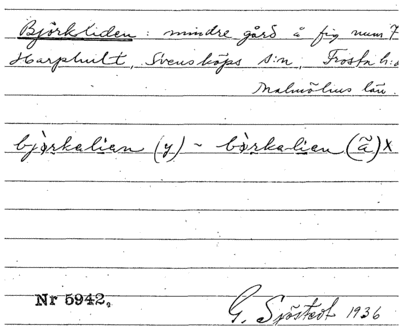 Björkliden : mindre gård å fig num 7
Harphult, Svensköps s:n, Frosta h:d
Malmöhus län.
bjørkalian (y) ~ børkalian (ã) x
Nr 5942.
G. Sjöstedt 1936